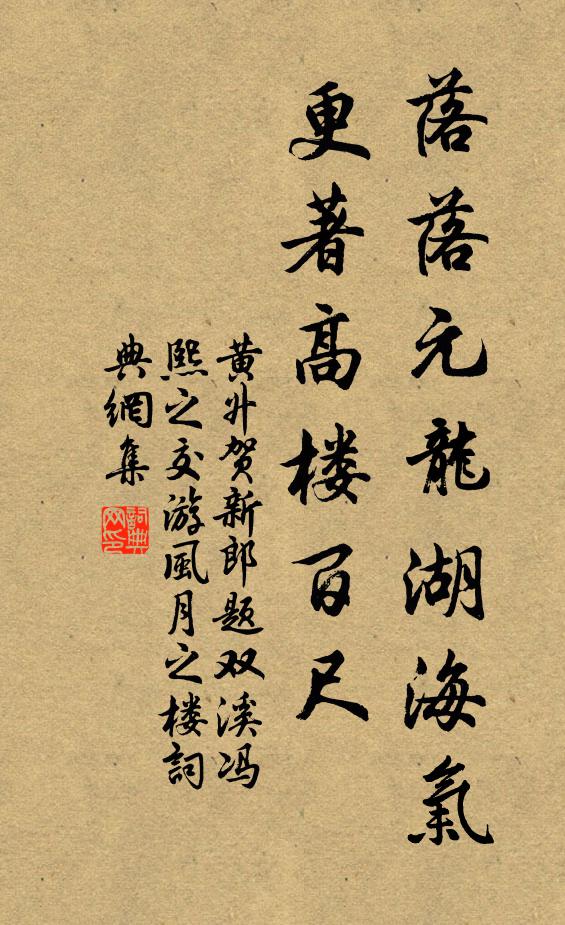 落落元龍湖海氣
更著高楼百尺
黄升贺新郎题双溪冯
熙之交游風月之楼詞
典網集
詞典
网印